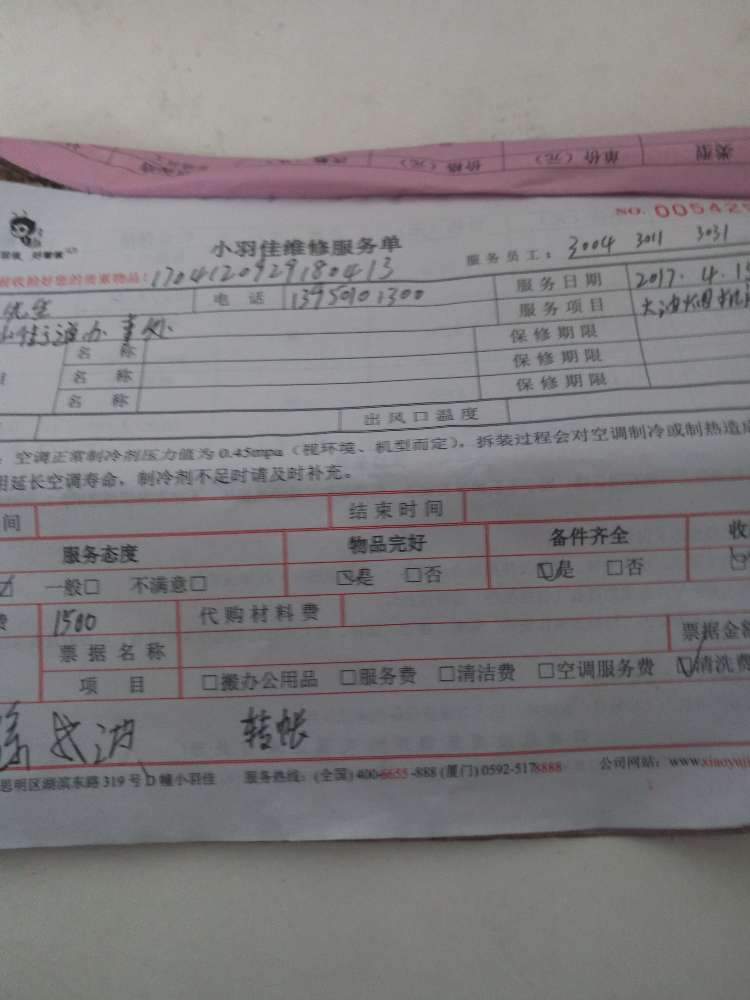 类型 单价（元） 价格（元）
NO. 005425
小羽佳维修服务单
服务员工： 3004 3011 3031
收拾好您的贵重物品：1704120929180413
先生 电话 13950101300 服务日期 2017.4.1
办事处 服务项目 大油烟机
名称 保修期限
名称 保修期限
名称 保修期限
出风口温度
空调正常制冷剂压力值为 0.45mpa（视环境、机型而定），拆装过程会对空调制冷或制热造成
用延长空调寿命，制冷剂不足时请及时补充。
间 结束时间
服务态度 物品完好 备件齐全 收
一般□ 不满意□ ☑是 □否 ☑是 □否
费 1500 代购材料费
票据名称 票据金额
项目 □搬办公用品 □服务费 □清洁费 □空调服务费 ☑清洗费
转帐
思明区湖滨东路 319 号 D 幢小羽佳 服务热线：(全国) 400-6655-888 (厦门) 0592-5178888 公司网站：www.xiaoyuji